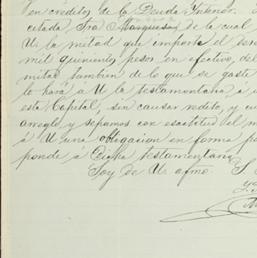 en creditos de la Deuda
citada, Sra Marquesa, de la cual
U. la mitad que importa el
mil quinientos pesos en efectivo, de
mitad tambien de lo que se gaste
lo hará á U la testamentaria á
esta Capital, sin causar redito, y
arregle, y sepamos con exactitud el
á U una obligacion en forma
ponde á Dicha testamentaria
Soy de U. afmo. S